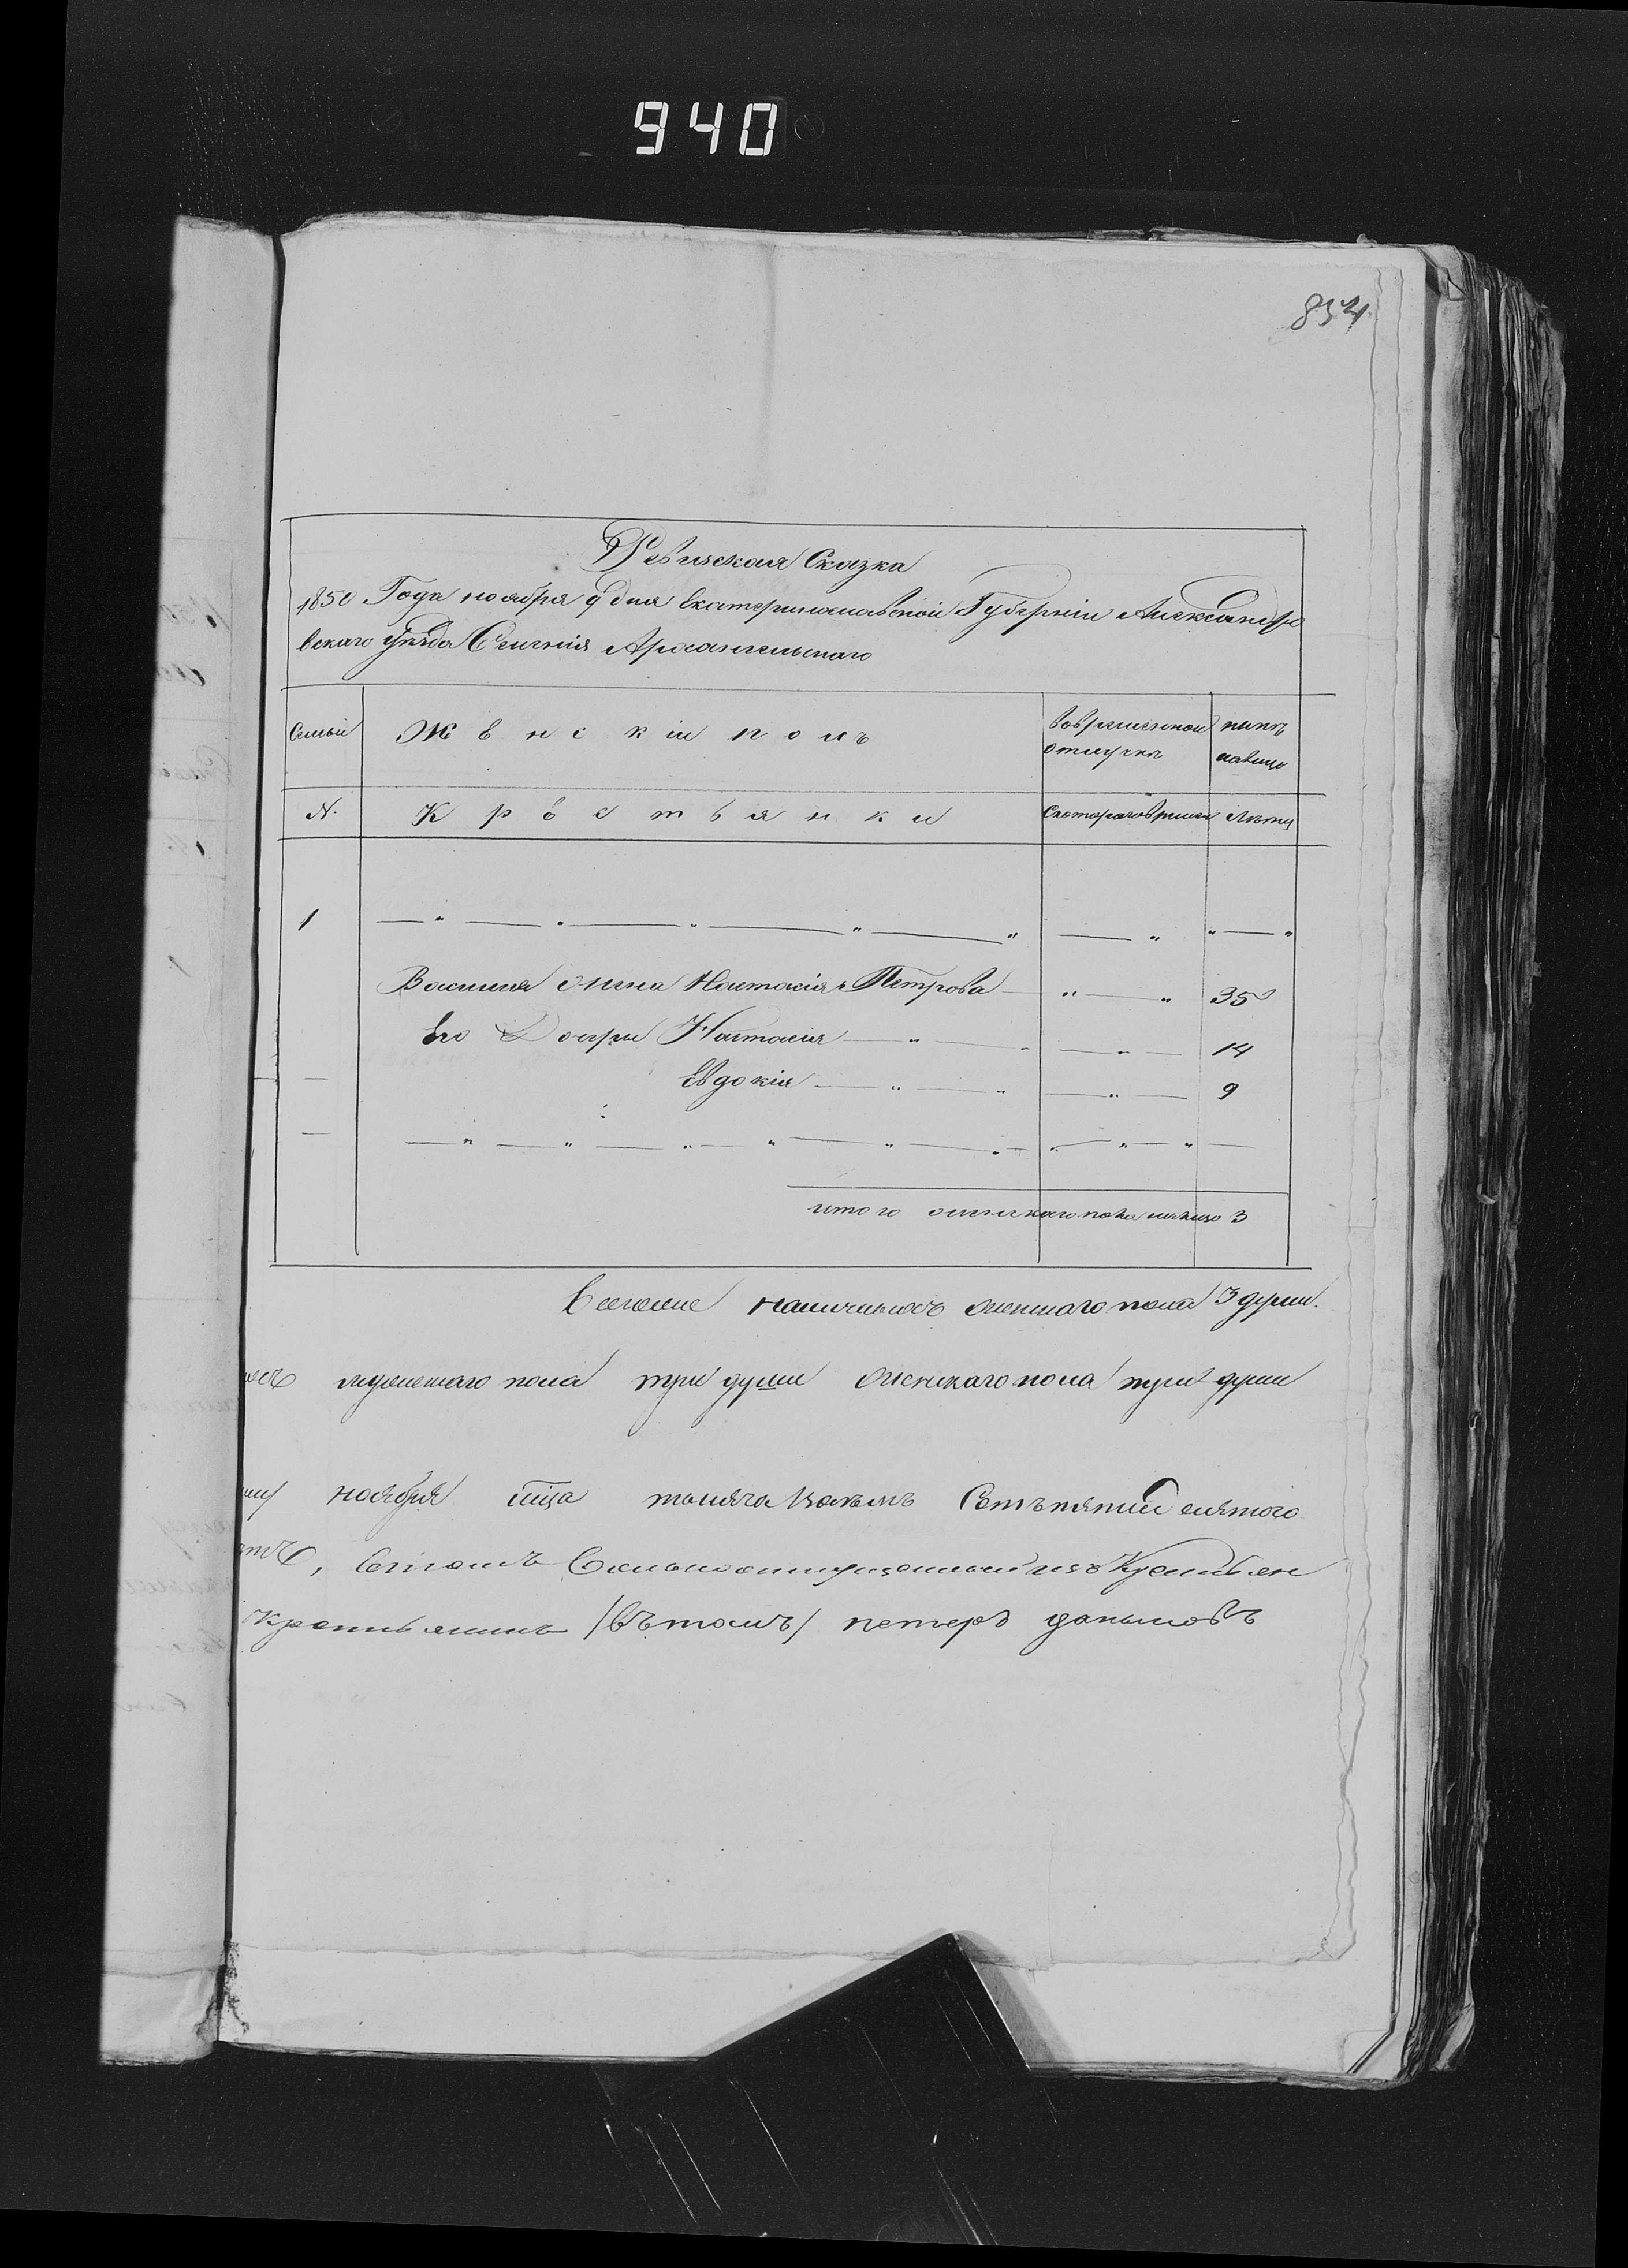 940
854
Ревизская Сказка
1850 Года ноября 9 дня Екатеринославской Губерніи Александро
вскаго уѣзда Селенія Архангельскаго
Семьи Женскій полъ вовременной отлучкѣ нынѣ налицо
N. Крестьянки Скотораго времени Лѣта
1
Василия жена Настасія Петрова 35
Его Дочри Настасия 14
Евдокія 9
итого женскаго пола налицо 3
Вселеніе наличныхъ женскаго пола 3 души.
мужескаго пола три души женскаго пола три души
ноября тысяча восемь Сотъ пятидесятого
, Вольноотпущенный изъ Крестьян
Крестьянинъ /въ томъ/ петеръ